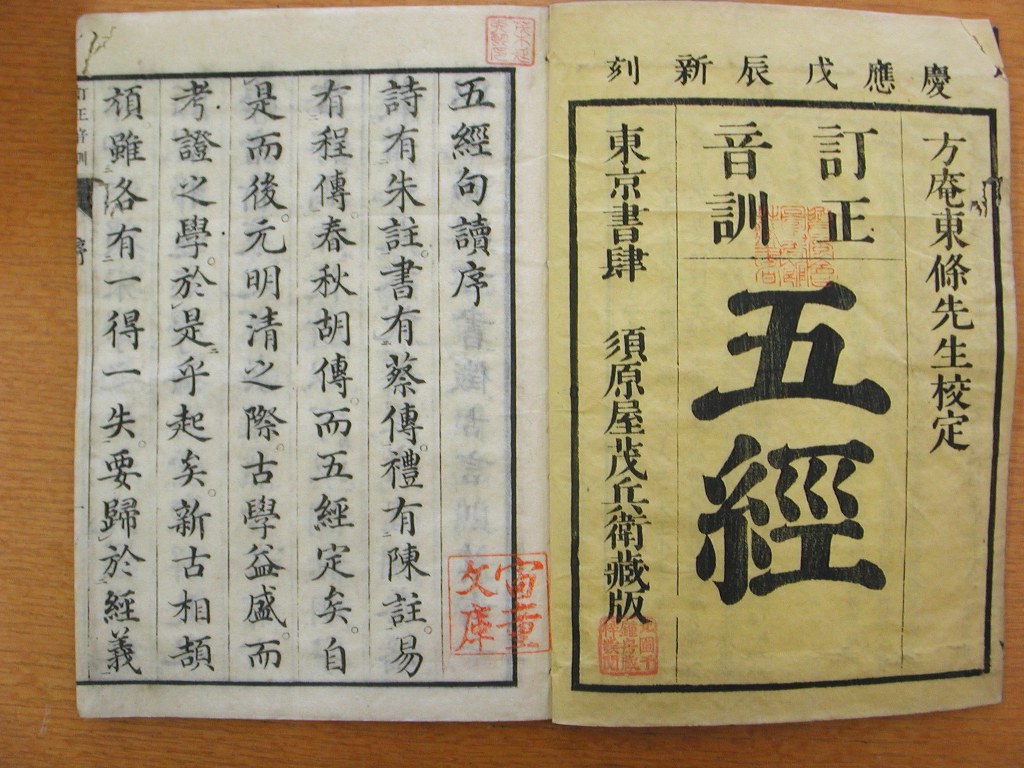 慶應戊辰新刻
方庵東條先生校定
訂正
音訓
五經
東京書肆 須原屋茂兵衛藏版
五經句讀序
詩有朱註。書有蔡傳。禮有陳註。易
有程傳。春秋胡傳。而五經定矣。自
是而後。元明清之際。古學益盛。而
考證之學。於是乎起矣。新古相頡
頏。雖各有一得一失。要歸於經義
文庫